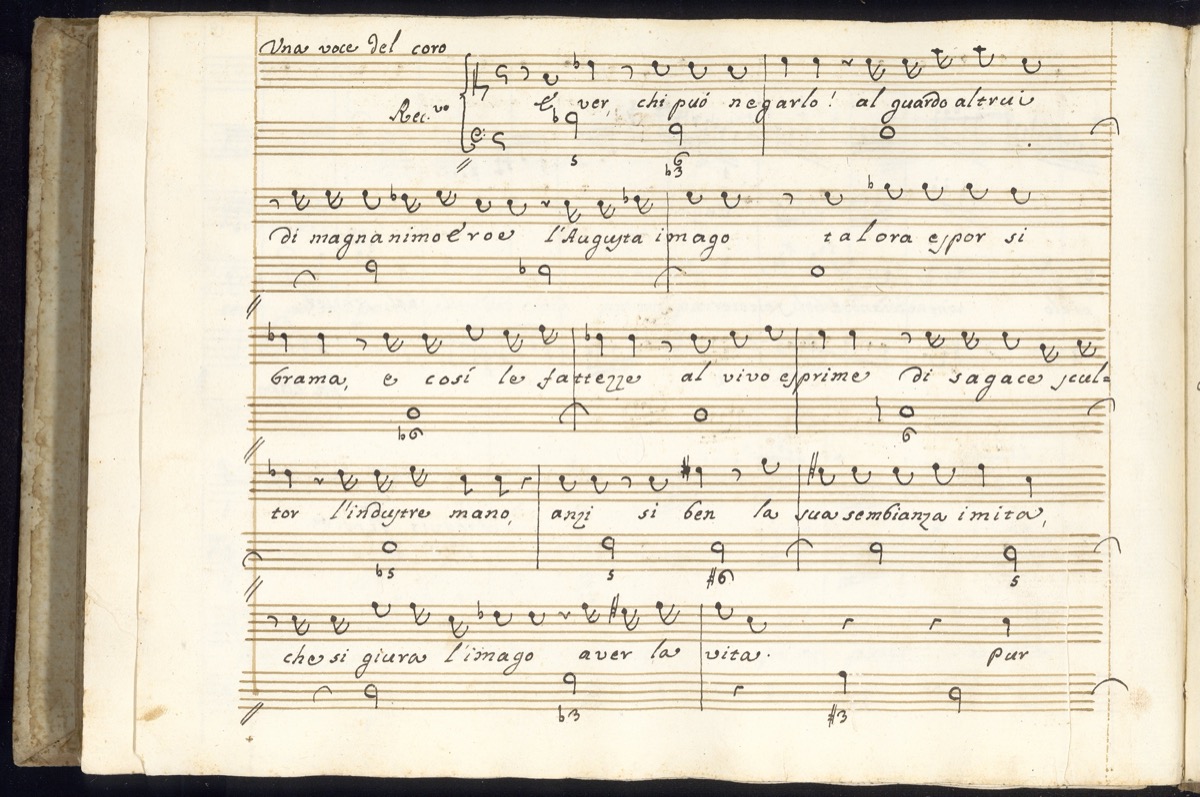 Una voce del coro
Rec.vo
È ver, chi puó negarlo! al guardo altrui
5 6
♭3
di magnanimo Eroe l'Augusta imago talora espor si
brama, e cosí le fattezze al vivo esprime di sagace scul=
♭6 6
tor l'industre mano, anzi si ben la sua sembianza imita,
♭5 5 #6 5
che si giura l'imago aver la vita. pur
♭3 #3